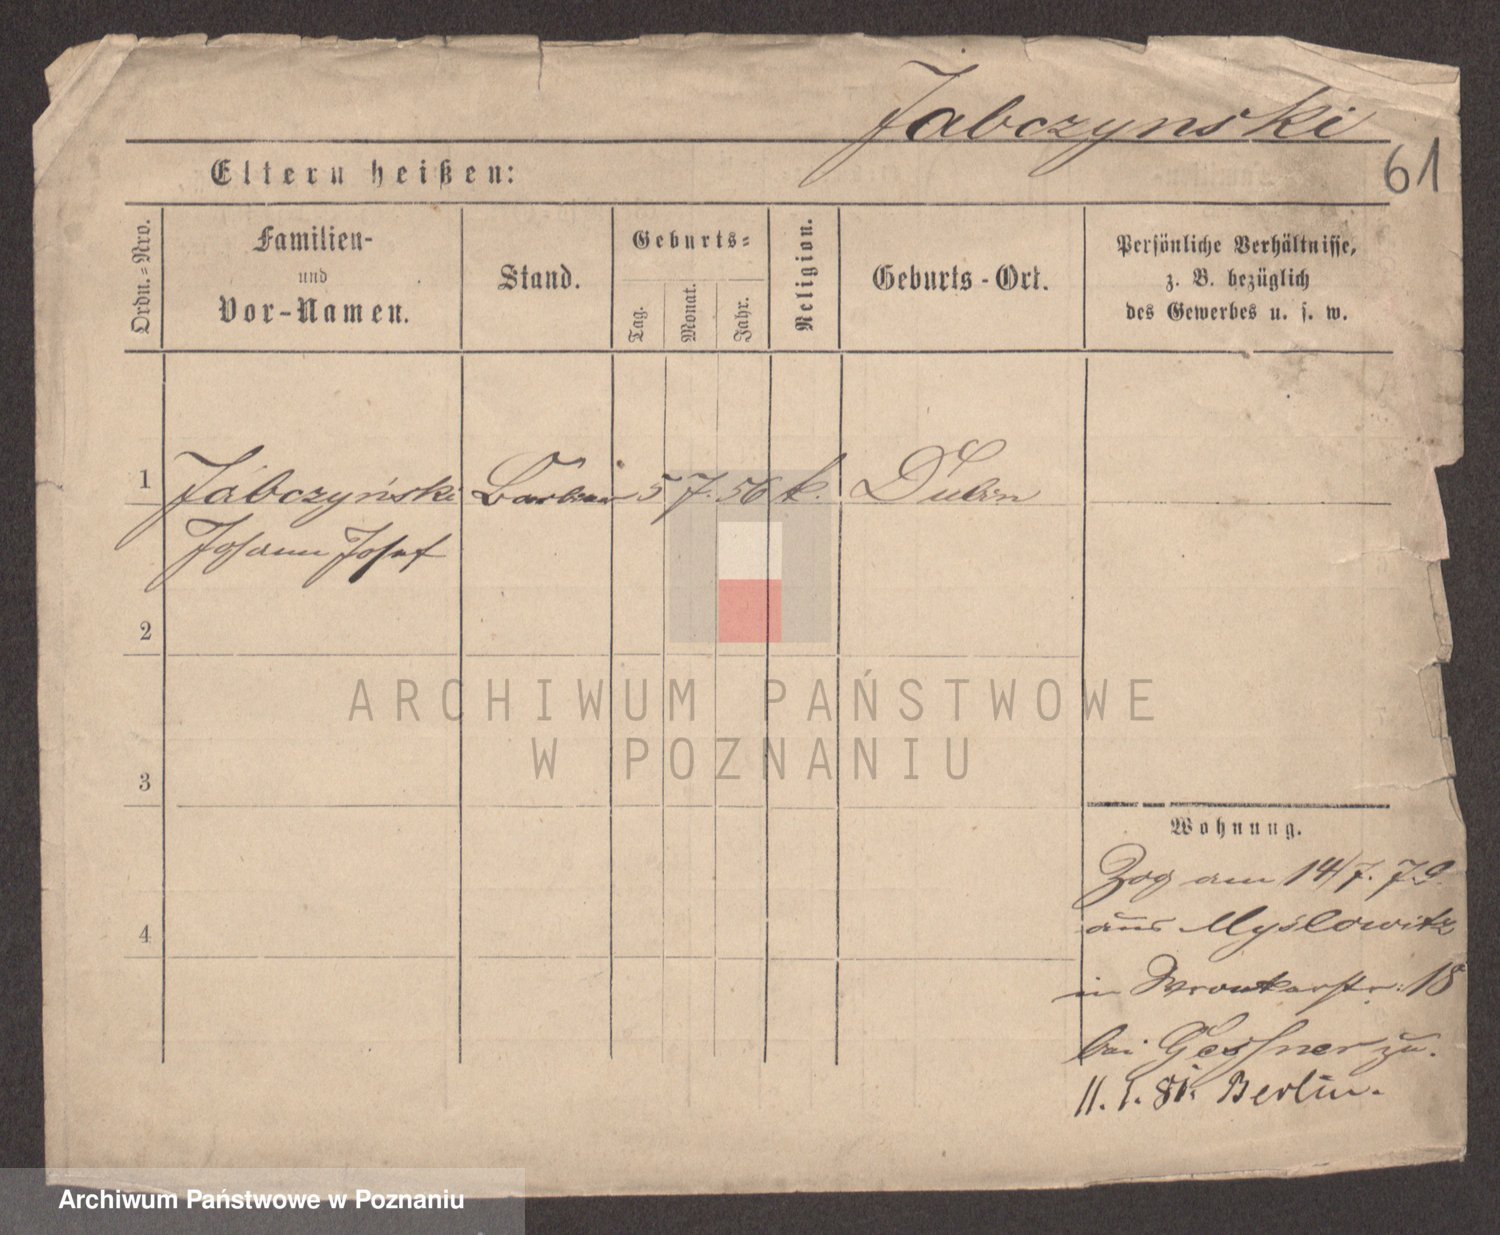 Jabczynski
61
Eltern heißen:
Ordn.=Nro.
Familien-
und
Vor-Namen.
Stand.
Geburts=
Tag.
Monat.
Jahr.
Religion.
Geburts-Ort.
Persönliche Verhältnisse,
z. B. bezüglich
des Gewerbes u. s. w.
1
Jabczyński Barbier 5 7. 56 k. Dubin
Johann Josef
2
3
4
Wohnung.
Zog am 14/7. 79.
aus Myslowitz
in Wronkerstr: 18
bei Gessner zu.
11. 1. 81. Berlin.
ARCHIWUM PAŃSTWOWE
W POZNANIU
Archiwum Państwowe w Poznaniu